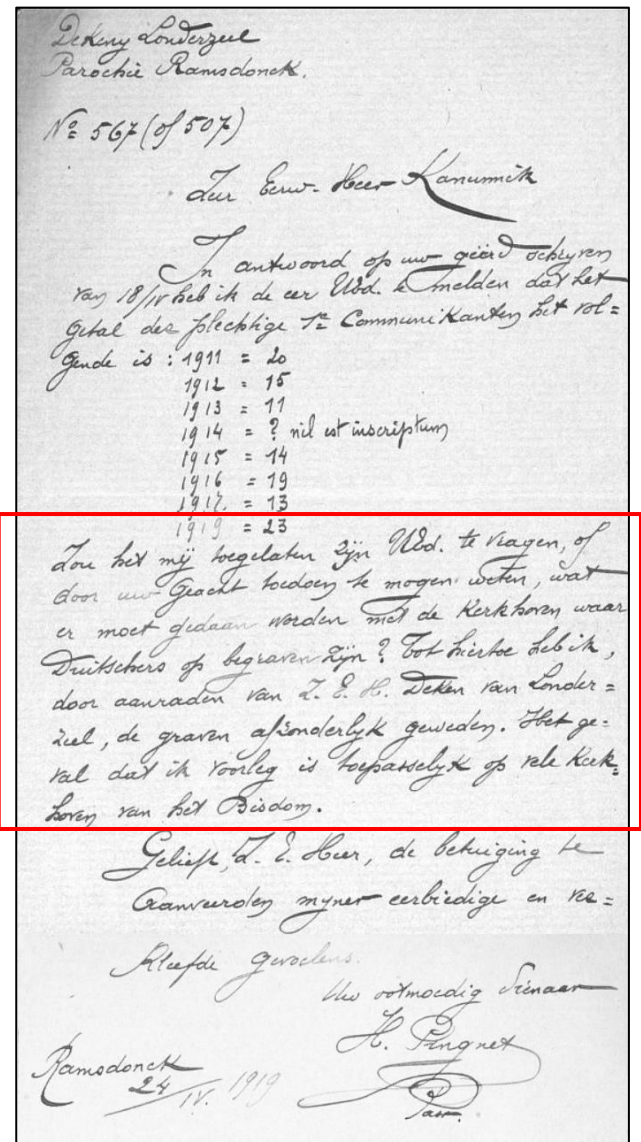 Dekeny Londerzeel
Parochie Ramsdonck.
Nº 567 (of 507)
Zeer Eerw. Heer Kanunnik
In antwoord op uw geëerd schryven
van 18/IV heb ik de eer UEd. te melden dat het
getal der plechtige 1e Communikanten het vol=
gende is : 1911 = 20
1912 = 15
1913 = 11
1914 = ? nil est inscriptum
1915 = 14
1916 = 19
1917 = 13
1919 = 23
Zou het mij toegelaten zijn UEd. te vragen, of
door uw Geacht toedoen te mogen weten, wat
er moet gedaan worden met de Kerkhoven waar
Duitschers op begraven zijn ? Tot hiertoe heb ik,
door aanraden van Z. E. H. Deken van Londer=
zeel, de graven afzonderlyk gewyden. Het ge=
val dat ik voorleg is toepasselyk op vele Kerk=
hoven van het Bisdom.
Gelieft, Z. E. Heer, de betuiging te
Aanveerden myner eerbiedige en ver=
kleefde gevoelens.
Uw ootmoedig dienaar
H. Pingnet
Ramsdonck
24/IV. 1919
Past.